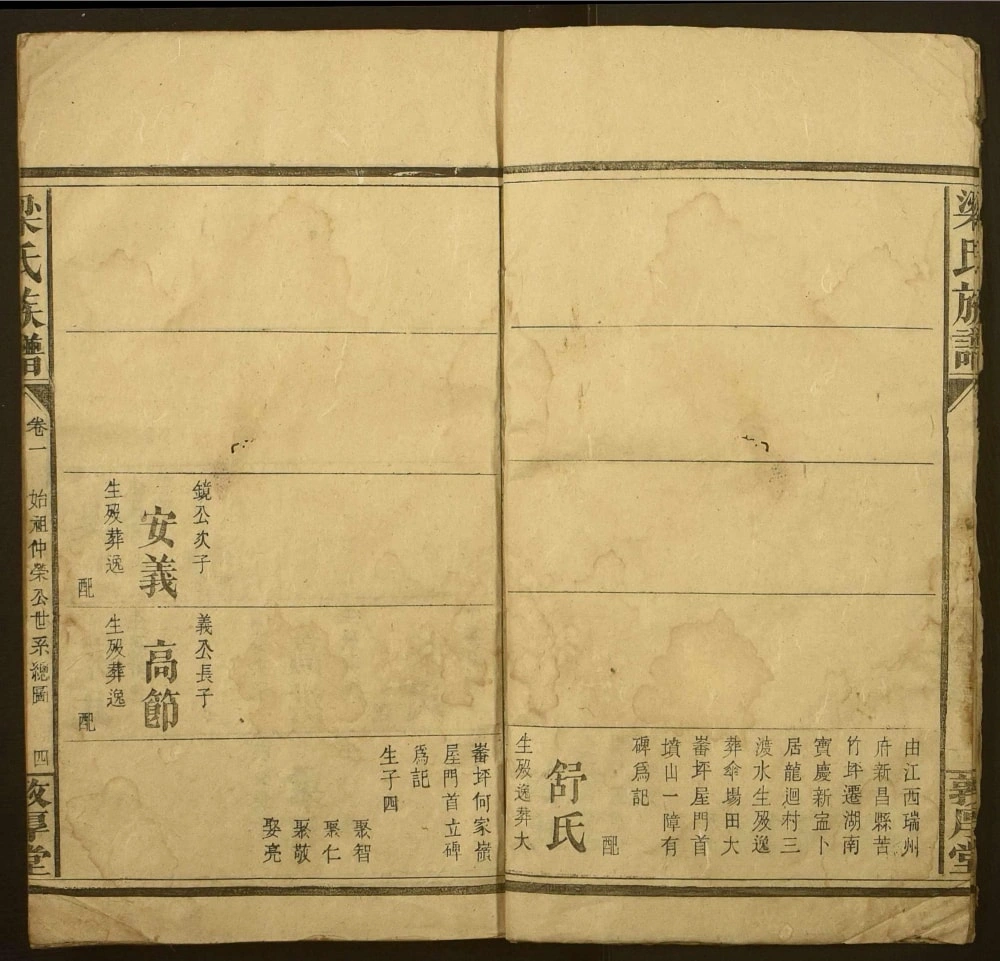 梁氏族譜
敦厚堂
由江西瑞州
府新昌縣苦
竹坪遷湖南
寶慶新寍卜
居龍迴村三
渡水生歿逸
葬傘場田大
蕃坪屋門首
墳山一障有
碑爲記
配
舒氏
生歿逸葬大
鏡公次子
安義
生歿葬逸
配
義公長子
高節
生歿葬逸
配
蕃坪何家嶺
屋門首立碑
爲記
生子四
聚智
聚仁
聚敬
娶亮
梁氏族譜
卷一
始祖仲榮公世系總圖
四
敦厚堂